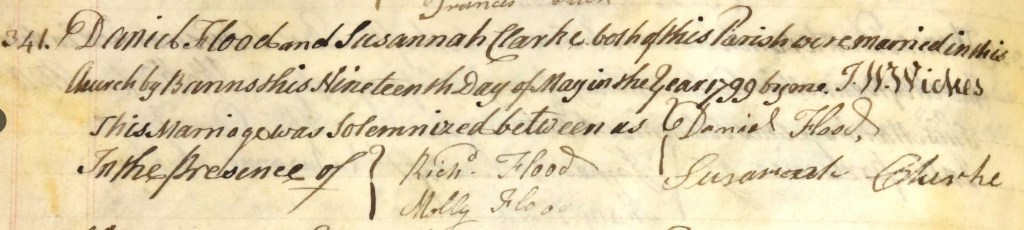 341. Daniel Flood and Susannah Clarke both of this Parish were married in this
Church by Banns this Nineteenth Day of May in the Year 1799 by me T. W. Wickes
This Marriage was Solemnized between us { Daniel Flood,
In the Presence of } Richd. Flood Susanah Clurke
Molly Flood